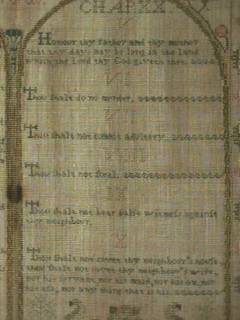 CHAP XX
Honour thy father and thy mother
that thy days may be long in the land
which the Lord thy God giveth thee
VI
Thou shalt do no murder
Thou shalt not commit adultery
VIII
Thou shalt not steal
IX
Thou shalt not bear false witness against
thy neighbour
X
Thou shalt not covet thy neighbour's house
thou shalt not covet thy neighbour's wife
nor his servant nor his maid, nor his ox, nor
his ass, nor any thing that is his